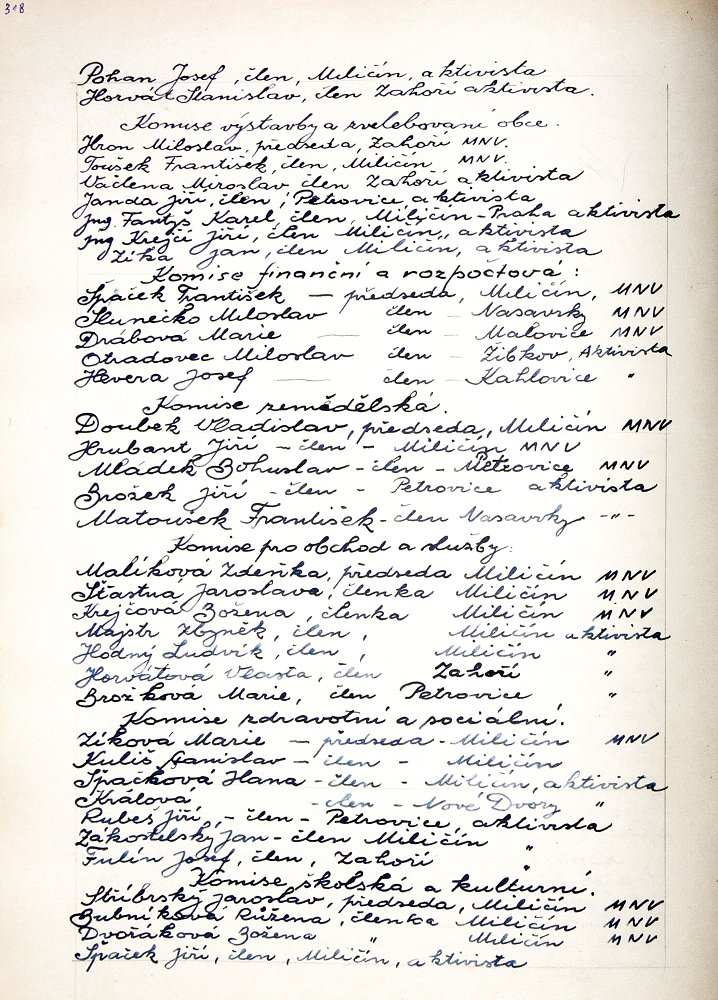 318
Pohan Josef, člen, Miličín, aktivista
Horvát Stanislav, člen Zahoří aktivista.
Komise výstavby a zvelebování obce.
Hron Miloslav, předseda, Zahoří MNV.
Toušek František, člen, Miličín MNV.
Václena Miroslav, člen Zahoří aktivista
Janda Jiří, člen, Petrovice, aktivista
Jng Fantyš Karel, člen, Miličín-Praha aktivista
Jng Krejčí Jiří, člen Miličín, aktivista
Zíka Jan, člen, Miličín, aktivista
Komise finanční a rozpočtová:
Špaček František — předseda, Miličín, MNV
Slunečko Miloslav člen - Nasavrky MNV
Drábová Marie — člen - Malovice MNV
Otradovec Miloslav člen - Žibkov, Aktivista
Hevera Josef — člen - Kahlovice "
Komise zemědělská.
Doubek Vladislav, předseda, Miličín MNV
Hrubant Jiří - člen - Miličín MNV
Mládek Bohuslav - člen - Petrovice MNV
Brožek Jiří - člen - Petrovice aktivista
Matoušek František - člen Nasavrky -"-
Komise pro obchod a služby:
Malíková Zdeňka, předseda Miličín MNV
Šťastná Jaroslava, členka Miličín MNV
Krejčová Božena, členka Miličín MNV
Majstr Zbyněk, člen, Miličín aktivista
Hodný Ludvík, člen, Miličín "
Horvátová Vlasta, člen Zahoří "
Brožková Marie, člen Petrovice "
Komise zdravotní a sociální.
Zíková Marie — předseda - Miličín MNV
Kuliš Stanislav - člen - Miličín
Špačková Hana - člen - Miličín, aktivista
Králová - člen - Nové Dvory "
Rubeš Jiří, - člen - Petrovice, aktivista
Zákostelský Jan - člen Miličín "
Fulín Josef, člen, Zahoří "
Komise školská a kulturní.
Stříbrský Jaroslav, předseda, Miličín MNV
Bubníková Růžena, členka Miličín MNV
Dvořáková Božena " Miličín MNV
Špaček Jiří, člen, Miličín, aktivista